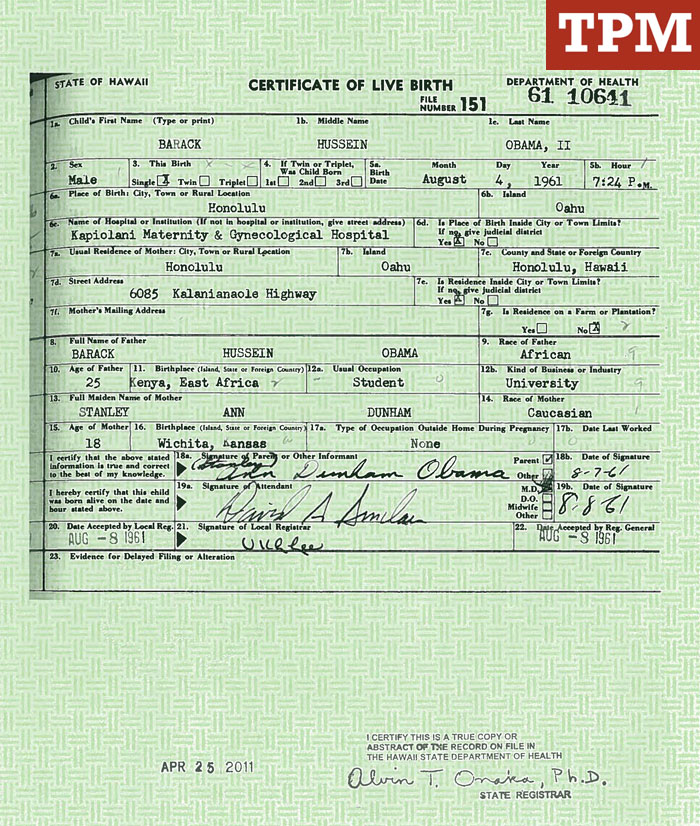 TPM
STATE OF HAWAII
CERTIFICATE OF LIVE BIRTH
DEPARTMENT OF HEALTH
FILE NUMBER 151
61 10641
1a. Child's First Name (Type or print)
1b. Middle Name
1c. Last Name
BARACK
HUSSEIN
OBAMA, II
2. Sex
Male
3. This Birth
Single X Twin Triplet
4. If Twin or Triplet, Was Child Born
1st 2nd 3rd
5a. Birth Date
Month Day Year
August 4, 1961
5b. Hour
7:24 P.M.
6a. Place of Birth: City, Town or Rural Location
Honolulu
6b. Island
Oahu
6c. Name of Hospital or Institution (If not in hospital or institution, give street address)
Kapiolani Maternity & Gynecological Hospital
6d. Is Place of Birth Inside City or Town Limits?
If no, give judicial district
Yes X No
7a. Usual Residence of Mother: City, Town or Rural Location
Honolulu
7b. Island
Oahu
7c. County and State or Foreign Country
Honolulu, Hawaii
7d. Street Address
6085 Kalanianaole Highway
7e. Is Residence Inside City or Town Limits?
If no, give judicial district
Yes X No
7f. Mother's Mailing Address
7g. Is Residence on a Farm or Plantation?
Yes No X
8. Full Name of Father
BARACK HUSSEIN OBAMA
9. Race of Father
African
10. Age of Father
25
11. Birthplace (Island, State or Foreign Country)
Kenya, East Africa
12a. Usual Occupation
Student
12b. Kind of Business or Industry
University
13. Full Maiden Name of Mother
STANLEY ANN DUNHAM
14. Race of Mother
Caucasian
15. Age of Mother
18
16. Birthplace (Island, State or Foreign Country)
Wichita, Kansas
17a. Type of Occupation Outside Home During Pregnancy
None
17b. Date Last Worked
I certify that the above stated
information is true and correct
to the best of my knowledge.
18a. Signature of Parent or Other Informant
(Stanley) Ann Dunham Obama
Parent
Other
18b. Date of Signature
8-7-61
I hereby certify that this child
was born alive on the date and
hour stated above.
19a. Signature of Attendant
David A Sinclair
M.D.
D.O.
Midwife
Other
19b. Date of Signature
8-8-61
20. Date Accepted by Local Reg.
AUG -8 1961
21. Signature of Local Registrar
U K L Lee
22. Date Accepted by Reg. General
AUG -8 1961
23. Evidence for Delayed Filing or Alteration
APR 25 2011
I CERTIFY THIS IS A TRUE COPY OR
ABSTRACT OF THE RECORD ON FILE IN
THE HAWAII STATE DEPARTMENT OF HEALTH
Alvin T. Onaka, Ph.D.
STATE REGISTRAR